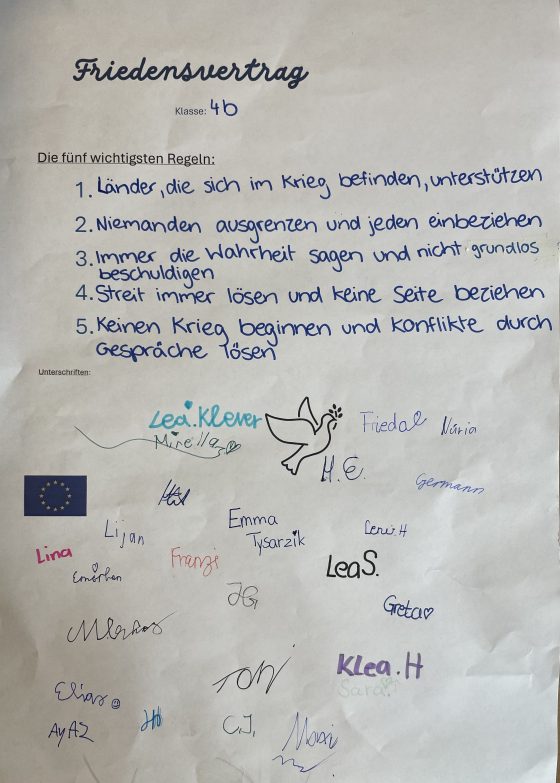 Friedensvertrag
Klasse: 4b
Die fünf wichtigsten Regeln:
1. Länder, die sich im Krieg befinden, unterstützen
2. Niemanden ausgrenzen und jeden einbeziehen
3. Immer die Wahrheit sagen und nicht grundlos
beschuldigen
4. Streit immer lösen und keine Seite beziehen
5. Keinen Krieg beginnen und Konflikte durch
Gespräche lösen
Unterschriften:
Lea.Klever
Mirella
Friedal
Núria
H.E.
Germann
Lijan
Emma
Tysarzik
Lina
Franzi
LeaS.
JG
Greta
Klea.H
Sara
Elias
AyAZ
C.J.
Maxi